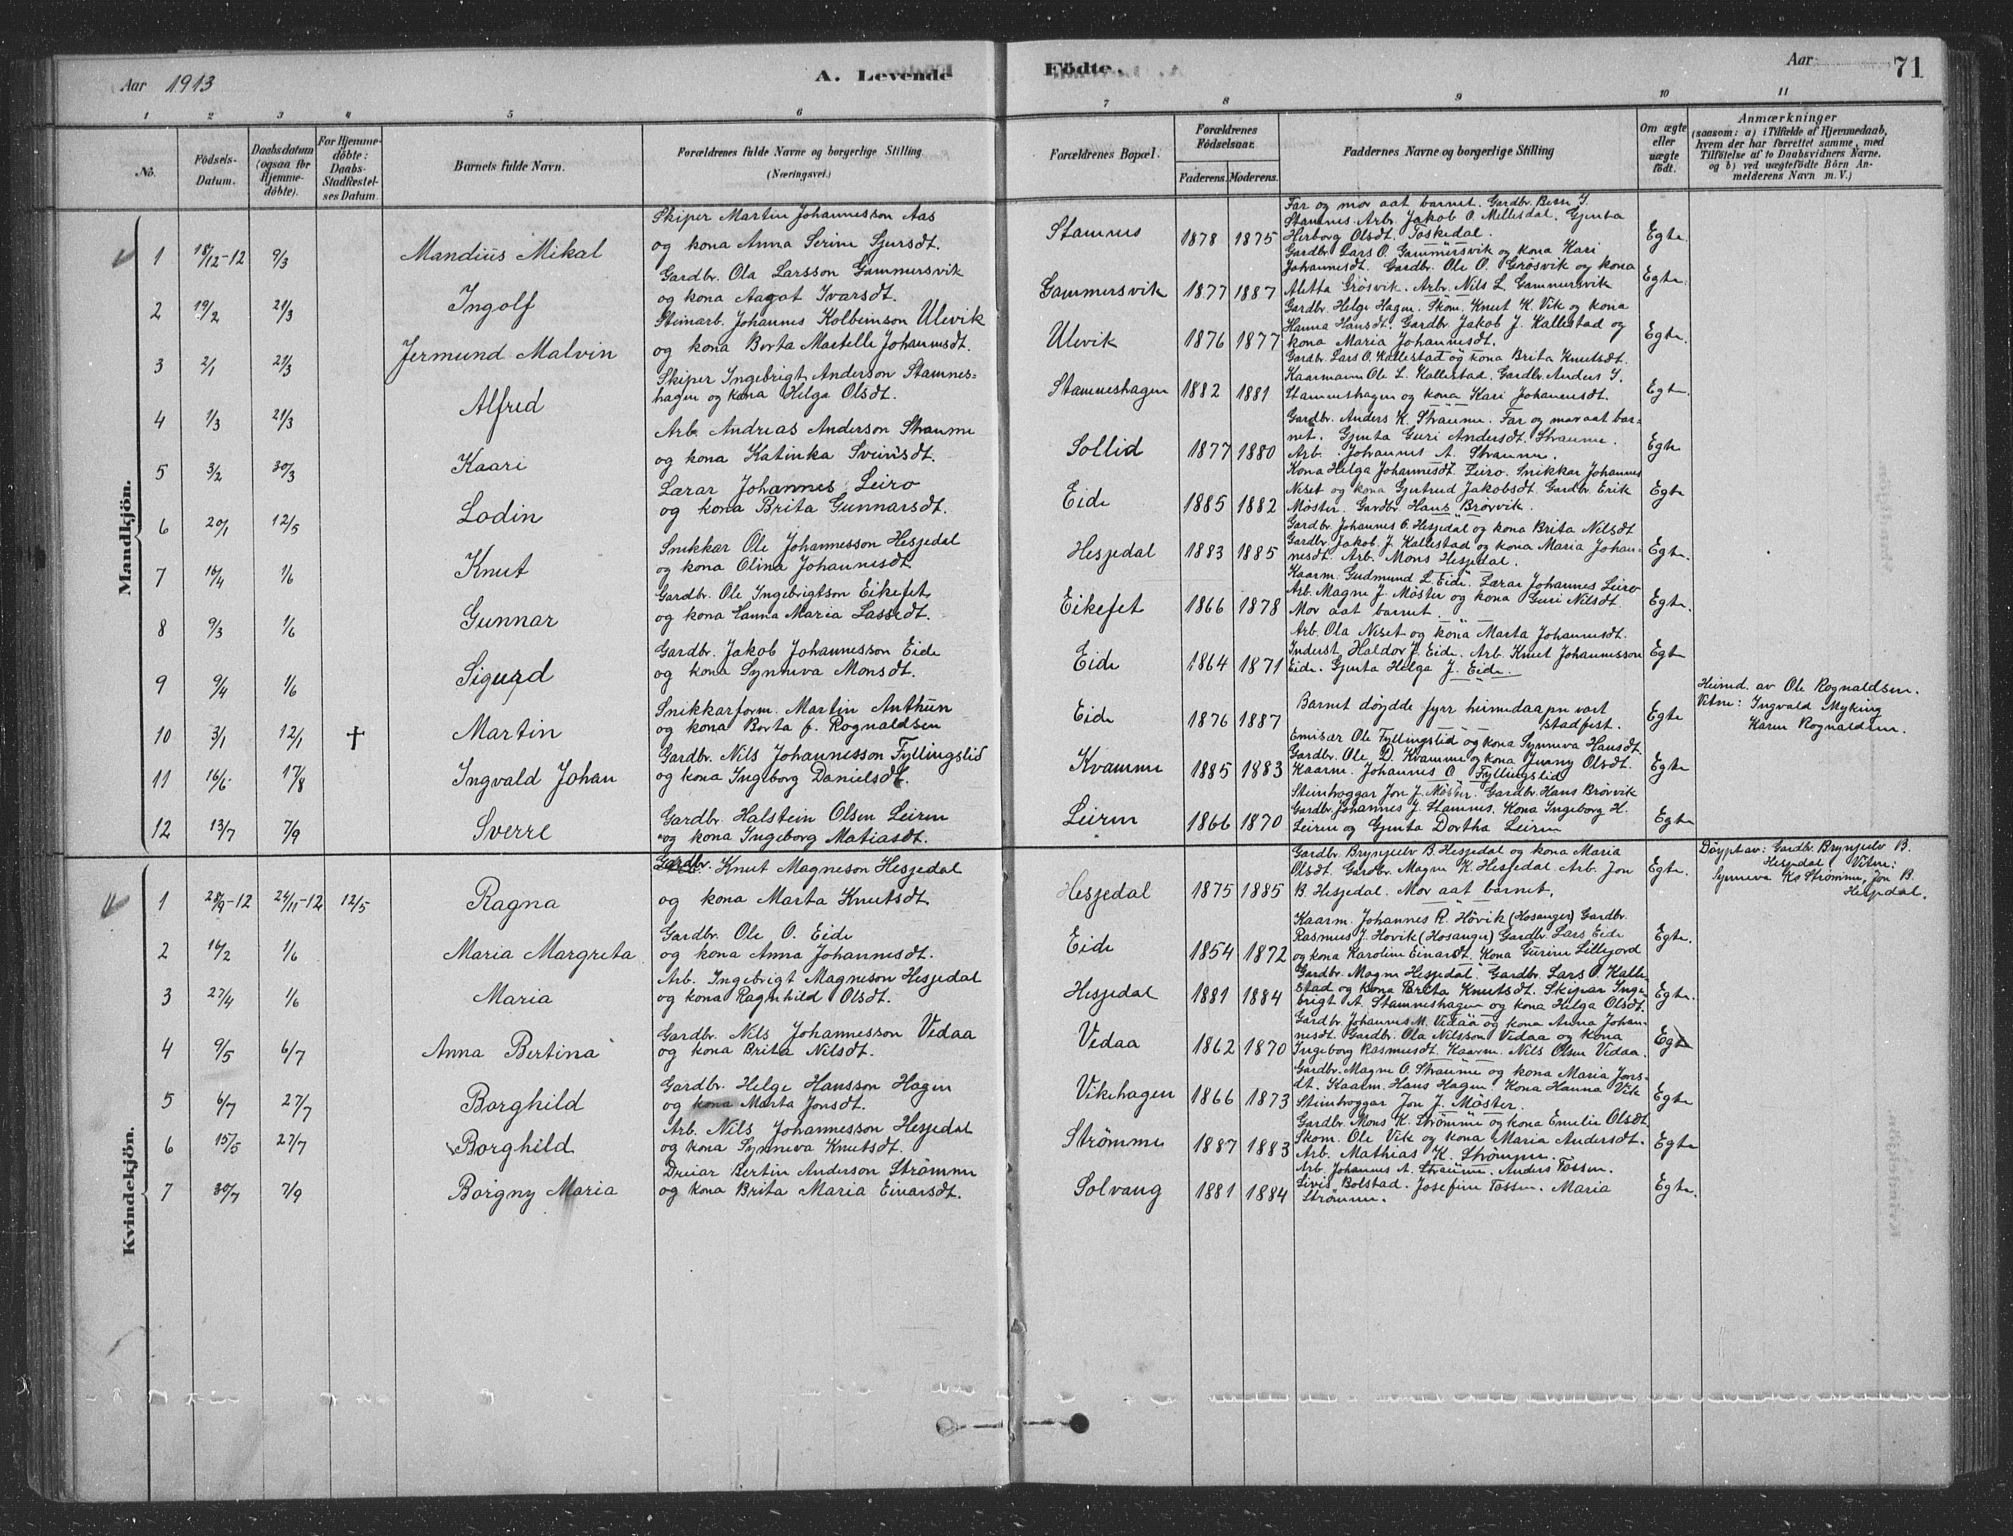 Aar 1913
A. Levende
Födte.
Aar
71
1 2 3 4 5 6 7 8 9 10 11
No.
Födsels-Datum.
Daabsdatum (ogsaa for Hjemmedöbte).
For Hjemmedöbte: Daabs-Stadfæstelses Datum.
Barnets fulde Navn.
Forældrenes fulde Navne og borgerlige Stilling (Næringsvei.)
Forældrenes Bopæl.
Forældrenes Födselsaar.
Faderens. Moderens.
Faddernes Navne og borgerlige Stilling
Om ægte eller uægte födt.
Anmærkninger (saasom: a) i Tilfælde af Hjemmedaab, hvem der har forrettet samme, med Tilföielse af to Daabsvidners Navne, og b) ved uægtefödte Börn Anmelderens Navn m. V.)
Mandkjön.
1 18/12-12 9/3 Mandius Mikal
Skiper Martin Johannesson Aas
og kona Anna Serine Sjursdt.
Stamnes 1878 1875
Far og mor aat barnet. Gardbr. Berre I.
Stamnes. Arb. Jakob O. Mellesdal. Gjenta
Herborg Olsdt. Toskedal.
Egte.
2 19/2 21/3 Ingolf
Gardbr. Ola Larsson Gammersvik
og kona Aagot Ivarsdt.
Gammersvik 1877 1887
Gardbr. Lars O. Gammersvik og kona Kari
Johannesdt. Gardbr. Ole O. Grösvik og kona
Aletta Grösvik. Arb. Nils L. Gammersvik
Egte.
3 2/1 21/3 Jermund Malvin
Steinarb. Johannes Kolbeinson Ulevik
og kona Berta Martelle Johannesdt.
Ulevik 1876 1877
Gardbr. Helge Hagen. Skom. Knut K. Vik og kona
Hanna Hansdt. Gardbr. Jakob J. Kallestad og
kona Maria Johannesdt.
Egte.
4 1/3 21/3 Alfred
Skiper Ingebrigt Anderson Stamnes-
hagen og kona Helga Olsdt.
Stamneshagen 1882 1881
Gardbr. Lars O. Kallestad og kona Brita Knutsdt.
Kaarmann Ole L. Kallestad. Gardbr. Anders I.
Stamneshagen og kona Kari Johannesdt.
Egte.
5 3/2 30/3 Kaari
Arb. Andreas Anderson Straume
og kona Katinka Sveinsdt.
Sollid 1877 1880
Gardbr. Anders K. Straume. Far og mor aat bar-
net. Gjenta Guri Andersdt. Straume.
Arb. Johannes A. Straume.
Egte
6 20/1 12/5 Lodin
Lærar Johannes Leiro
og kona Brita Gunnarsdt.
Eide 1885 1882
Kona Helga Johannesdt. Leiro. Snikkar Johannes
Neset og kona Gjertrud Jakobsdt. Gardbr. Erik
Möster. Gardbr. Hans Brörvik.
Egte
7 16/4 1/6 Knut
Snikkar Ole Johannesson Hesjedal
og kona Olina Johannesdt.
Hesjedal 1883 1885
Gardbr. Johannes O. Hesjedal og kona Brita Nilsdt
Gardbr. Jakob J. Kallestad og kona Maria Johan-
nesdt. Arb. Mons Hesjedal.
Egte.
8 9/3 1/6 Gunnar
Gardbr. Ole Ingebrigtson Eikefet
og kona Hanna Maria Lassedt.
Eikefet 1866 1878
Kaarm. Gudmund L. Eide. Lærar Johannes Leiro
Arb. Magne J. Möster og kona Guri Nilsdt
Mor aat barnet.
Egte.
9 9/4 1/6 Sigurd
Gardbr. Jakob Johannesson Eide
og kona Synneva Monsdt.
Eide 1864 1871
Arb. Ola Neset og kona Marta Johannesdt.
Inderst Haldor J. Eide. Arb. Knut Johannesson
Eide. Gjenta Helga J. Eide.
Egte
10 3/1 12/1 † Martin
Snikkarform. Martin Anthun
og kona Berta f. Rognaldsen
Eide 1876 1887
Barnet döydde fyrr heimedaapen vart
stadfest.
Egte
Heimd. av Ole Rognaldsen.
Vitne: Ingvald Myking
Karen Rognaldsen.
11 16/6 17/8 Ingvald Johan
Gardbr. Nils Johannesson Fyllingslid
og kona Ingeborg Danielsdt.
Kvamme 1885 1883
Emisær Ole Fyllingslid og kona Synneva Hansdt.
Gardbr. Ole D. Kvamme og kona Jenny Olsdt.
Kaarm. Johannes O. Fyllingslid
Egte
12 13/7 7/9 Sverre
Gardbr. Halstein Olsen Leiren
og kona Ingeborg Matiasdt.
Leiren 1866 1870
Steinhoggar Jon J. Möster. Gardbr. Hans Brörvik
Gardbr. Johannes J. Stamnes. Kona Ingeborg H.
Leiren og Gjenta Dortha Leiren
Egte
Kvindekjön.
1 28/9-12 24/11-12 12/5 Ragna
Gardbr. Knut Magneson Hesjedal
og kona Marta Knutsdt.
Hesjedal 1875 1885
Gardbr. Brynjulv B. Hesjedal og kona Maria
Olsdt. Gardbr. Magne K. Hesjedal. Arb. Jon
B. Hesjedal. Mor aat barnet.
Egte.
Döypt av: Gardbr. Brynjulv B.
Hesjedal. Vitne:
Synneva Ks Strömme, Jon B.
Hesjedal.
2 16/2 1/6 Maria Margreta
Gardbr. Ole O. Eide
og kona Anna Johannesdt.
Eide 1854 1872
Kaarm. Johannes R. Hövik (Hosanger) Gardbr.
Rasmus J. Hovik (Hosanger) Gardbr. Lars Eide
og kona Karoline Einarsdt. Kona Gurine Lillejord
Egte.
3 27/4 1/6 Maria
Arb. Ingebrigt Magneson Hesjedal
og kona Ragnhild Olsdt.
Hesjedal 1881 1884
Gardbr. Magne Hesjedal. Gardbr. Lars O. Kalle-
stad og kona Brita Knutsdt. Skipar Inge-
brigt A. Stamneshagen og kona Helga Olsdt.
Egte.
4 9/5 6/7 Anna Bertina
Gardbr. Nils Johannesson Vedaa
og kona Brita Nilsdt.
Vedaa 1862 1870
Gardbr. Johannes M. Vedaa og kona Anna Johan-
nesdt. Gardbr. Ola Nilsson Vedaa og kona
Ingeborg Rasmusdt. Kaarm. Nils Olsen Vedaa.
Egte
5 6/7 27/7 Borghild
Gardbr. Helge Hansson Hagen
og kona Marta Jonsdt.
Vikehagen 1866 1873
Gardbr. Magne O. Straume og kona Maria Jons-
dt. Kaarm. Hans Hagen. Kona Hanna Vik
Steinhoggar Jon J. Möster.
Egte
6 15/5 27/7 Borghild
Arb. Nils Johannesson Hesjedal
og kona Synneva Knutsdt.
Strømme 1887 1883
Gardbr. Mons K. Strömme og kona Emelie Olsdt
Skom. Ole Vik og kona Maria Andersdt.
Arb. Mathias K. Strömme.
Egte
7 30/7 7/9 Borgny Maria
Dreiar Bertin Anderson Strømme
og kona Brita Maria Einarsdt.
Solvang 1881 1884
Arb. Johannes A. Straume. Anders Tossen.
Sivis Bolstad. Josefine Tossen. Maria
Strömme.
Egte.